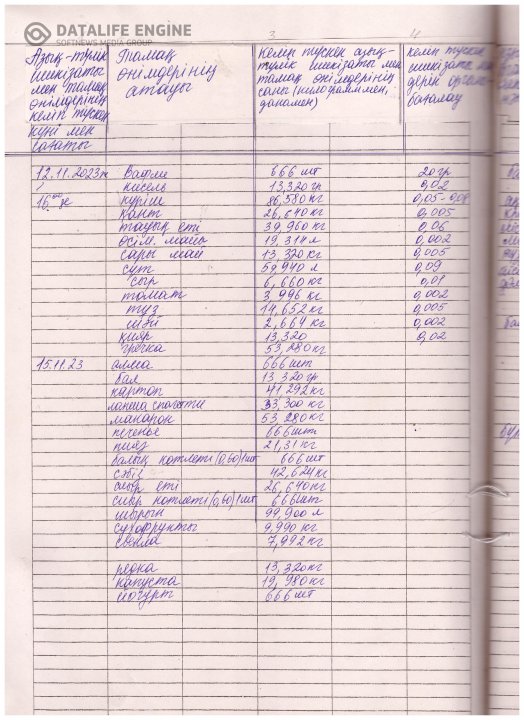 DATALIFE ENGINE
SOFTNEWS MEDIA GROUP
3 4
Азық-түлік шикізаты мен тамақ өнімдерінің келіп түскен күні мен сағаты
Тамақ өнімдерінің атауы
келіп түскен азық-түлік шикізаты мен тамақ өнімдерінің саны (килограммен, данамен)
келіп түскен шикізаты
бағалау
12.11.2023ж Вафли 666 шт 20 гр
кисель 13,320 гр 0,02
16⁰⁰ де күріш 86,580 кг 0,05-0,08
қант 26,640 кг 0,005
тауық еті 39,960 кг 0,06
өсім. майы 19,314 л 0,002
сары май 13,320 кг 0,005
сүт 59,940 л 0,09
сыр 6,660 кг 0,01
томат 3,996 кг 0,002
тұз 14,652 кг 0,005
шәй 2,664 кг 0,002
қияр 13,320 0,02
гречка 53,280 кг
15.11.23 алма 666 шт
бал 13,320 гр
картоп 41,292 кг
лапша спагетти 33,300 кг
макарон 53,280 кг
печенье 666 шт
пияз 21,31 кг
балық котлеті (0,60) 1 шт 666 шт
сәбіз 42,624 кг
сиыр еті 26,640 кг
сиыр котлеті (0,60) 1 шт 666 шт
шырын 99,900 л
сухофрукты 9,990 кг
свекла 7,992 кг
редка 13,320 кг
капуста 19,980 кг
йогурт 666 шт